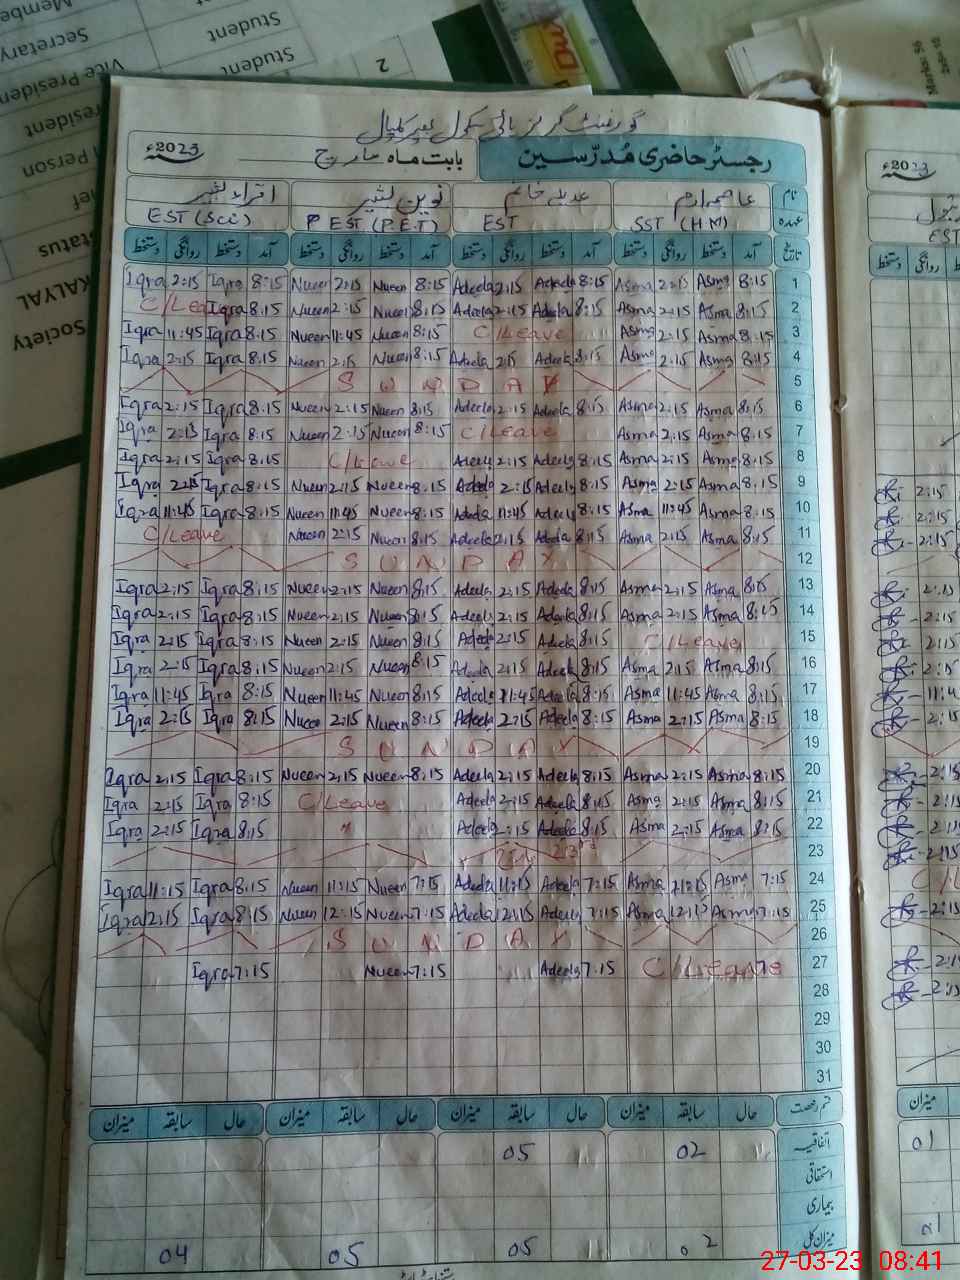 Member
Secretary
Student
Vice President
Student
2
Society
KALYAL
Status
Person
Marks: 56
گورنمنٹ گرلز ہائی سکول
رجسٹر حاضری مُدرّسین بابت ماہ مارچ 2023ء
نام عاصمہ ارم عدیلہ خانم نورین بشیر اقراء بشیر
عہدہ SST (HM) EST EST (P.E.T) EST (Sci)
تاریخ آمد دستخط روانگی دستخط آمد دستخط روانگی دستخط آمد دستخط روانگی دستخط آمد دستخط روانگی دستخط
Iqra 2:15 Iqra 8:15 Nueen 2:15 Nueen 8:15 Adeela 2:15 Adeela 8:15 Asma 2:15 Asma 8:15 1
C/Lea Iqra 8:15 Nueen 2:15 Nueen 8:15 Adeela 2:15 Adeela 8:15 Asma 2:15 Asma 8:15 2
Iqra 11:45 Iqra 8:15 Nueen 11:45 Nueen 8:15 C/Leave Asma 2:15 Asma 8:15 3
Iqra 2:15 Iqra 8:15 Nueen 2:15 Nueen 8:15 Adeela 2:15 Adeela 8:15 Asma 2:15 Asma 8:15 4
SUNDAY 5
Iqra 2:15 Iqra 8:15 Nueen 2:15 Nueen 8:15 Adeela 2:15 Adeela 8:15 Asma 2:15 Asma 8:15 6
Iqra 2:15 Iqra 8:15 Nueen 2:15 Nueen 8:15 C/Leave Asma 2:15 Asma 8:15 7
Iqra 2:15 Iqra 8:15 C/Leave Adeela 2:15 Adeela 8:15 Asma 2:15 Asma 8:15 8
Iqra 2:15 Iqra 8:15 Nueen 2:15 Nueen 8:15 Adeela 2:15 Adeela 8:15 Asma 2:15 Asma 8:15 9
Iqra 11:45 Iqra 8:15 Nueen 11:45 Nueen 8:15 Adeela 11:45 Adeela 8:15 Asma 11:45 Asma 8:15 10
C/Leave Nueen 2:15 Nueen 8:15 Adeela 2:15 Adeela 8:15 Asma 2:15 Asma 8:15 11
SUNDAY 12
Iqra 2:15 Iqra 8:15 Nueen 2:15 Nueen 8:15 Adeela 2:15 Adeela 8:15 Asma 2:15 Asma 8:15 13
Iqra 2:15 Iqra 8:15 Nueen 2:15 Nueen 8:15 Adeela 2:15 Adeela 8:15 Asma 2:15 Asma 8:15 14
Iqra 2:15 Iqra 8:15 Nueen 2:15 Nueen 8:15 Adeela 2:15 Adeela 8:15 C/Leave 15
Iqra 2:15 Iqra 8:15 Nueen 2:15 Nueen 8:15 Adeela 2:15 Adeela 8:15 Asma 2:15 Asma 8:15 16
Iqra 11:45 Iqra 8:15 Nueen 11:45 Nueen 8:15 Adeela 11:45 Adeela 8:15 Asma 11:45 Asma 8:15 17
Iqra 2:15 Iqra 8:15 Nueen 2:15 Nueen 8:15 Adeela 2:15 Adeela 8:15 Asma 2:15 Asma 8:15 18
SUNDAY 19
Iqra 2:15 Iqra 8:15 Nueen 2:15 Nueen 8:15 Adeela 2:15 Adeela 8:15 Asma 2:15 Asma 8:15 20
Iqra 2:15 Iqra 8:15 C/Leave Adeela 2:15 Adeela 8:15 Asma 2:15 Asma 8:15 21
Iqra 2:15 Iqra 8:15 " Adeela 2:15 Adeela 8:15 Asma 2:15 Asma 8:15 22
23
Iqra 11:15 Iqra 8:15 Nueen 11:15 Nueen 7:15 Adeela 11:15 Adeela 7:15 Asma Asma 7:15 24
Iqra 12:15 Iqra 8:15 Nueen 12:15 Nueen 7:15 Adeela 12:15 Adeela 7:15 Asma 12:15 Asma 7:15 25
SUNDAY 26
Iqra 7:15 Nueen 7:15 Adeela 7:15 C/Leave 27
28
29
30
31
قسم رخصت حال سابقہ میزان حال سابقہ میزان حال سابقہ میزان حال سابقہ میزان
اتفاقیہ 02 05
استحقاقی
بیماری
میزان کل 02 05 05 04
2023ء
EST
دستخط روانگی
2:15
2:15
2:15
2:15
2:15
2:15
2:15
11:4
2:15
2:15
2:15
2:15
2:15
2:15
2:15
2:15
میزان
01
01
27-03-23 08:41